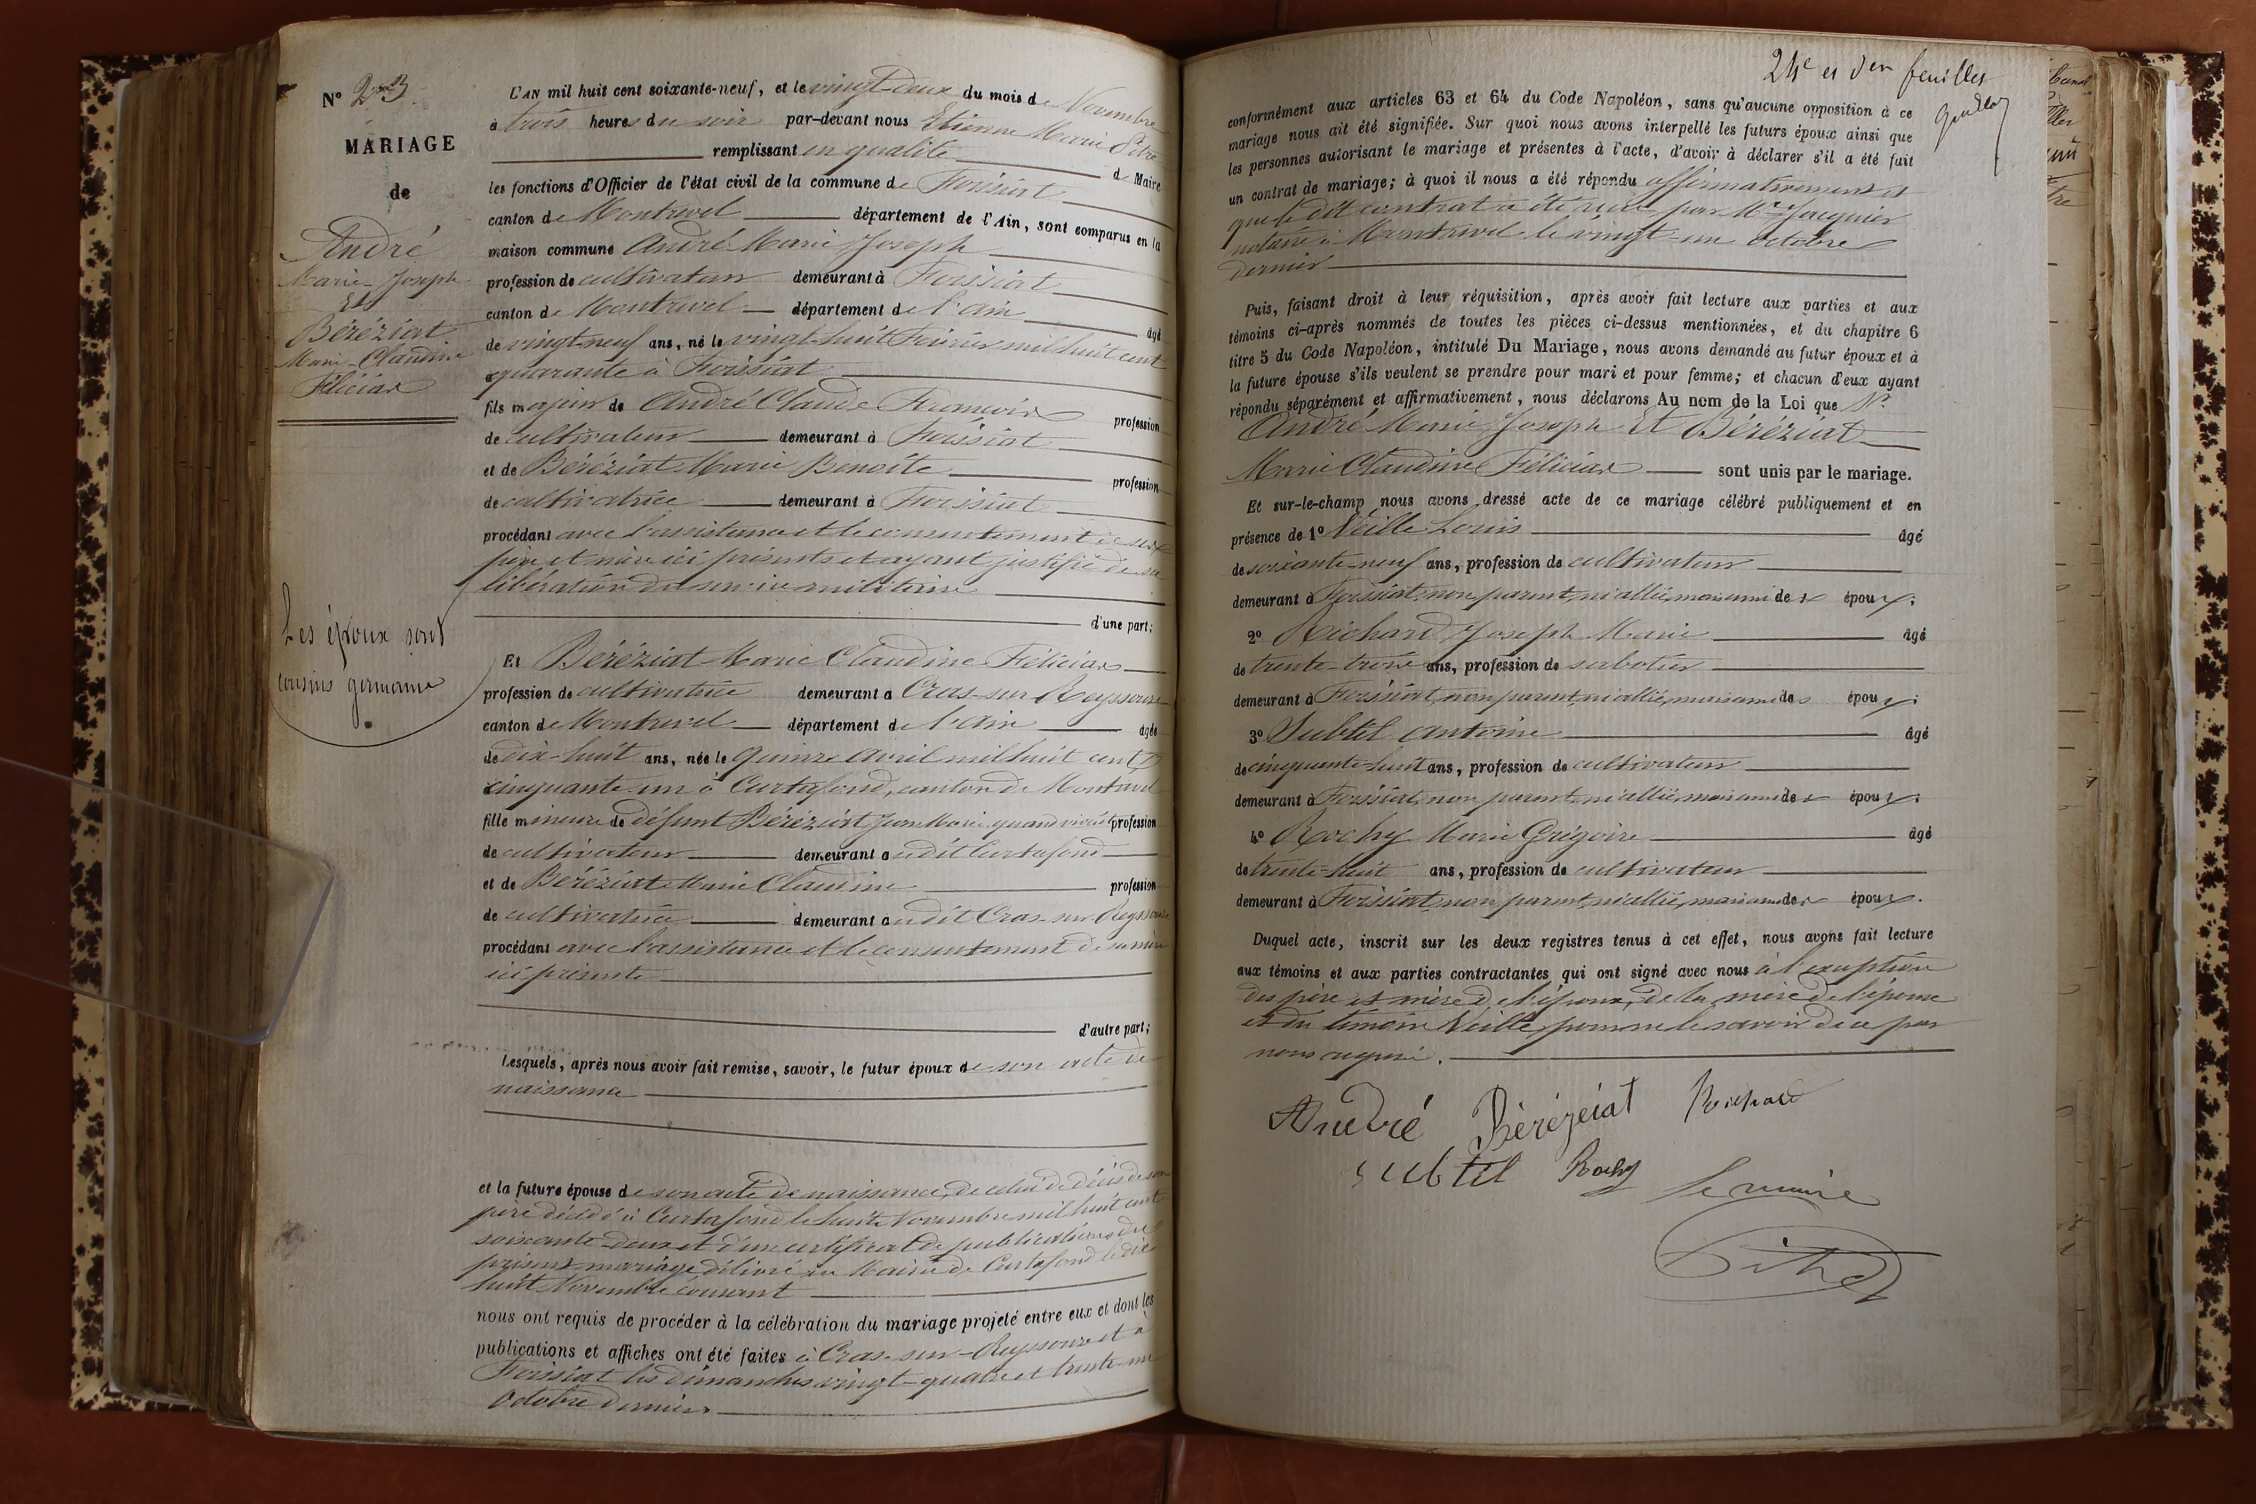 N° 23
MARIAGE
de
André
Marie-Joseph
Et
Béréziat
Marie-Claudine
Félicia
Les époux sont
cousins germains
L'AN mil huit cent soixante-neuf, et le vingt-deux du mois de Novembre
à trois heures du soir par-devant nous Etienne Marie Pitre
remplissant en qualité de Maire
les fonctions d'Officier de l'état civil de la commune de Foissiat
canton de Montrevel département de l'Ain, sont comparus en la
maison commune André Marie Joseph
profession de cultivateur demeurant à Foissiat
canton de Montrevel département de l'ain âgé
de vingt-neuf ans, né le vingt-huit Février mil huit cent
quarante à Foissiat
fils majeur de André Claude François profession
de cultivateur demeurant à Foissiat
et de Béréziat Marie Benoite profession
de cultivatrice demeurant à Foissiat
procédant avec l'assistance et le consentement de ses
père et mère ici présents et ayant justifié de sa
libération du service militaire
d'une part;
Et Béréziat Marie Claudine Félicia
profession de cultivatrice demeurant à Cras-sur-Reyssouze
canton de Montrevel département de l'ain âgée
de dix-huit ans, née le quinze avril mil huit cent
cinquante-un à Curtafond, canton de Montrevel
fille mineure de défunt Béréziat Jean Marie quand vivait profession
de cultivateur demeurant audit Curtafond
et de Béréziat Marie Claudine profession
de cultivatrice demeurant audit Cras-sur-Reyssouze
procédant avec l'assistance et le consentement de sa mère
ici présente
d'autre part;
Lesquels, après nous avoir fait remise, savoir, le futur époux de son acte de
naissance
et la future épouse de son acte de naissance, de celui de décès de son
père décédé à Curtafond le huit Novembre mil huit cent
soixante-deux et d'un certificat de publications du
présent mariage délivré en Mairie de Curtafond le dix
huit Novembre courant
nous ont requis de procéder à la célébration du mariage projeté entre eux et dont les
publications et affiches ont été faites à Cras-sur-Reyssouze et à
Foissiat les dimanches vingt-quatre et trente-un
Octobre dernier
24e et der feuillet
conformément aux articles 63 et 64 du Code Napoléon, sans qu'aucune opposition à ce
mariage nous ait été signifiée. Sur quoi nous avons interpellé les futurs époux ainsi que
les personnes autorisant le mariage et présentes à l'acte, d'avoir à déclarer s'il a été fait
un contrat de mariage; à quoi il nous a été répondu affirmativement et
que le dit contrat a été reçu par Me Jacquier
notaire à Montrevel le vingt-un octobre
dernier
Puis, faisant droit à leur réquisition, après avoir fait lecture aux parties et aux
témoins ci-après nommés de toutes les pièces ci-dessus mentionnées, et du chapitre 6
titre 5 du Code Napoléon, intitulé Du Mariage, nous avons demandé au futur époux et à
la future épouse s'ils veulent se prendre pour mari et pour femme; et chacun d'eux ayant
répondu séparément et affirmativement, nous déclarons Au nom de la Loi que Mr
André Marie Joseph Et Béréziat
Marie Claudine Félicia sont unis par le mariage.
Et sur-le-champ nous avons dressé acte de ce mariage célébré publiquement et en
présence de 1° Veille Louis âgé
de soixante-neuf ans, profession de cultivateur
demeurant à Foissiat, non parent, ni allié, mais ami des époux;
2° Richard Joseph Marie âgé
de trente-trois ans, profession de sabotier
demeurant à Foissiat, non parent, ni allié, mais ami des époux;
3° Subtil antoine âgé
de cinquante-huit ans, profession de cultivateur
demeurant à Foissiat, non parent, ni allié, mais ami des époux;
4° Rochy Marie Grégoire âgé
de trente-huit ans, profession de cultivateur
demeurant à Foissiat, non parent, ni allié, mais ami des époux.
Duquel acte, inscrit sur les deux registres tenus à cet effet, nous avons fait lecture
aux témoins et aux parties contractantes qui ont signé avec nous à l'exception
des père et mère de l'époux, de la mère de l'épouse
et du témoin Veille, pour ne le savoir de ce par
nous enquis.
André Béréziat Richard
subtil Rochy
Le maire
Pitre